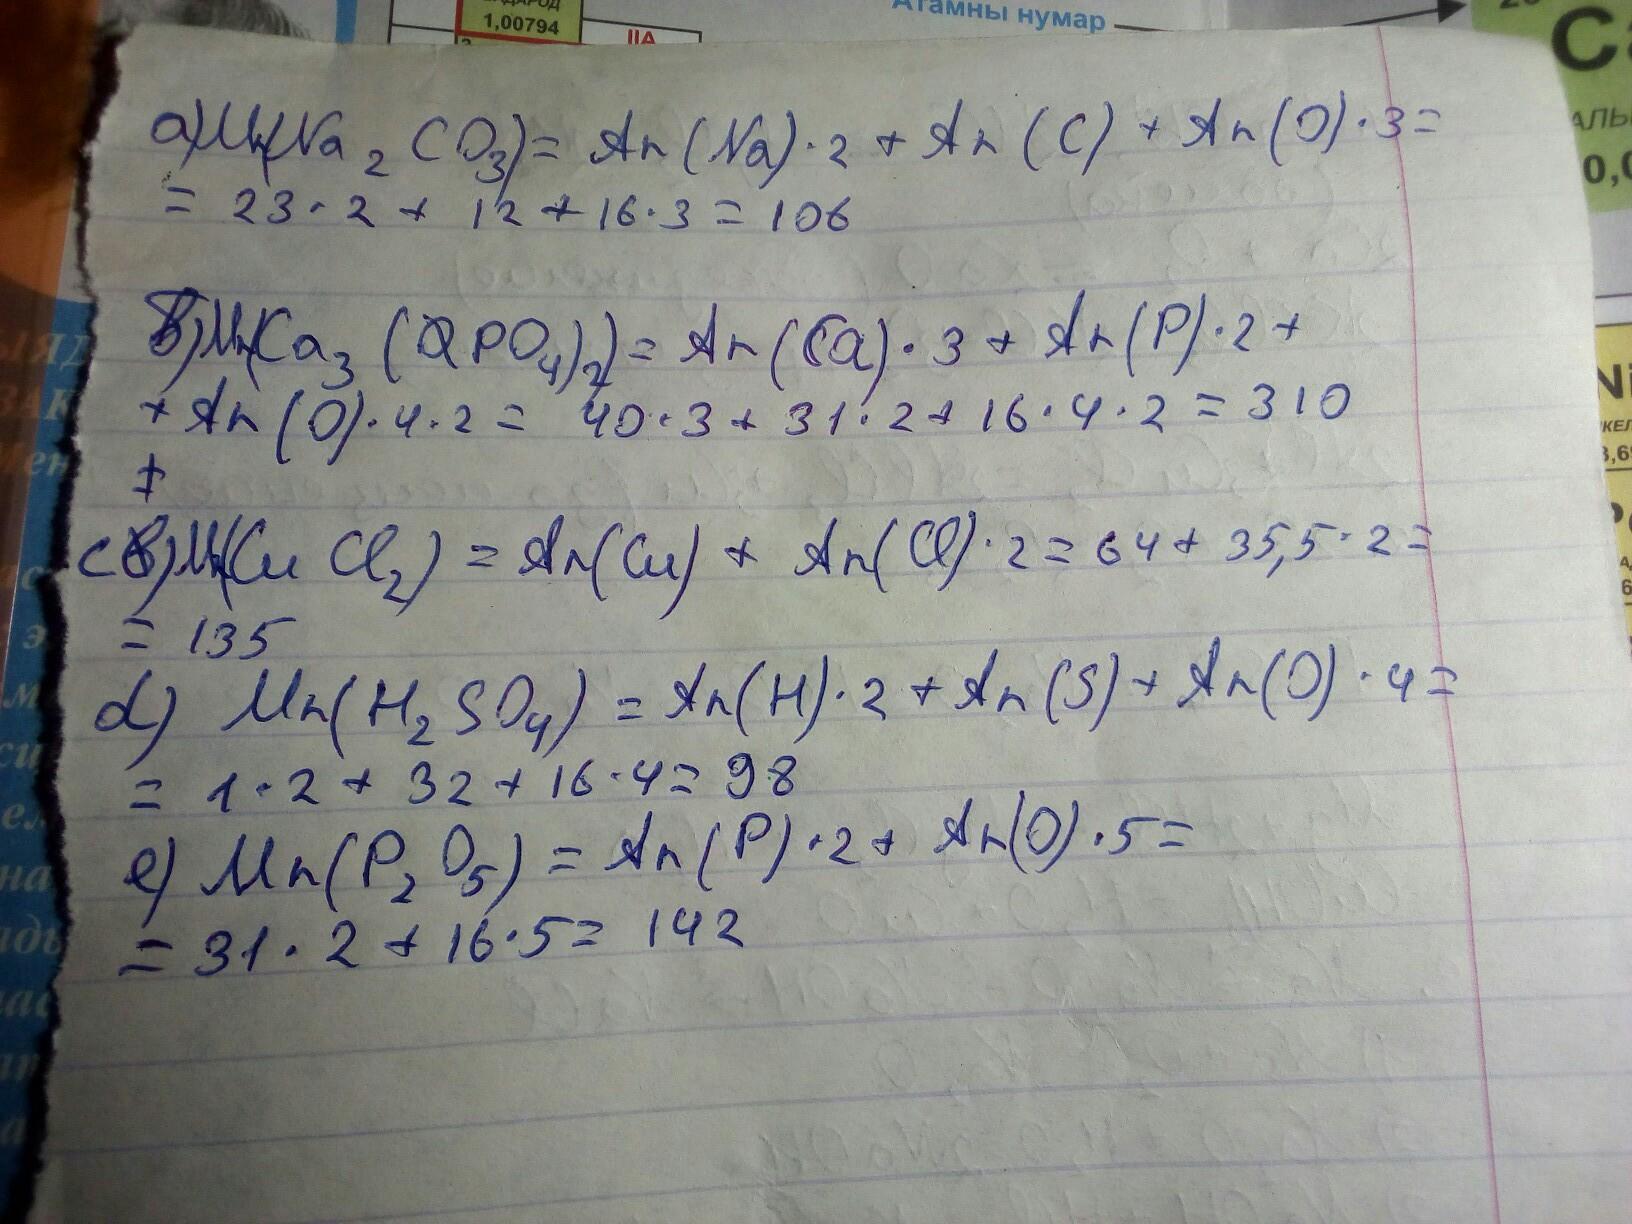 ВАДАРОД
1,00794
IIA
Атамны нумар
a) Mr(Na2CO3) = Ar(Na)·2 + Ar(C) + Ar(O)·3 =
= 23·2 + 12 + 16·3 = 106
b) Mr(Ca3(PO4)2) = Ar(Ca)·3 + Ar(P)·2 +
+ Ar(O)·4·2 = 40·3 + 31·2 + 16·4·2 = 310
+
c) Mr(CuCl2) = Ar(Cu) + Ar(Cl)·2 = 64 + 35,5·2 =
= 135
d) Mr(H2SO4) = Ar(H)·2 + Ar(S) + Ar(O)·4 =
= 1·2 + 32 + 16·4 = 98
e) Mr(P2O5) = Ar(P)·2 + Ar(O)·5 =
= 31·2 + 16·5 = 142